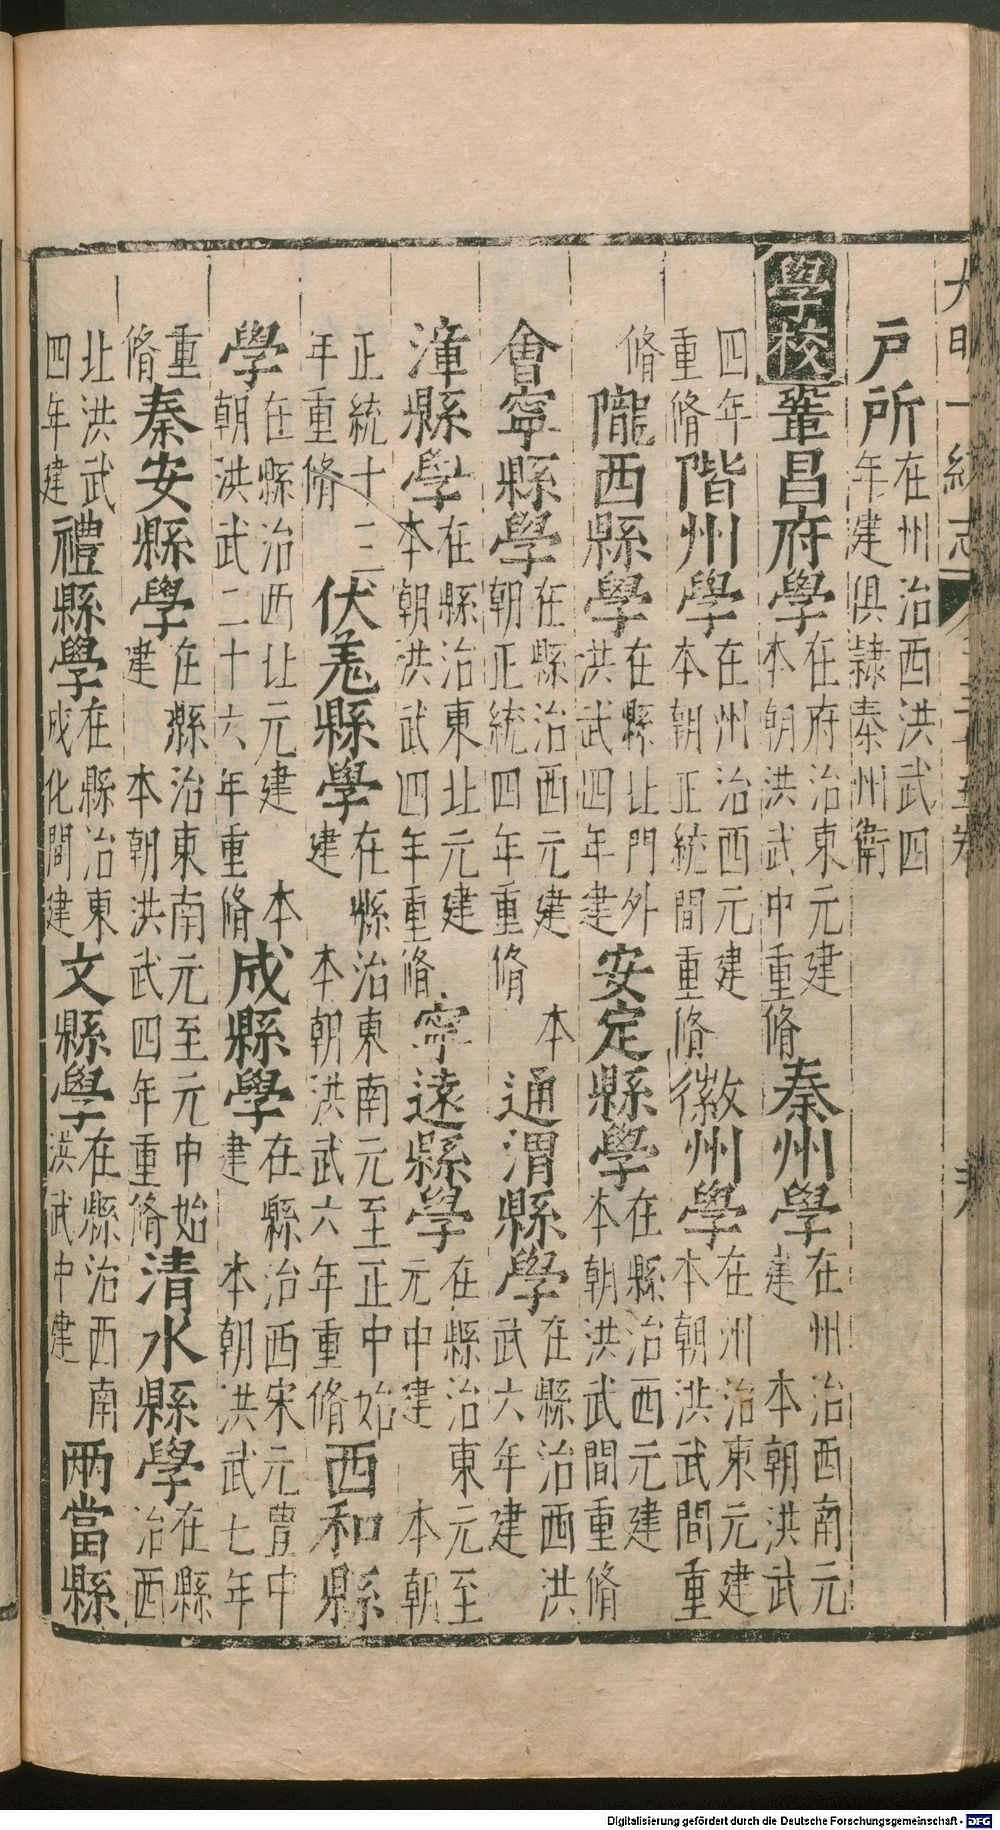 大明一統志
戶所在州治西洪武四年建俱隸秦州衛
學校 鞏昌府學在府治東元建本朝洪武中重脩秦州學在州治西南元建 本朝洪武
四年重脩階州學在州治西元建本朝正統間重脩徽州學在州治東元建本朝洪武間重
脩隴西縣學在縣北門外洪武四年建安定縣學在縣治西元建本朝洪武間重脩
會寧縣學在縣治西元建 本朝正統四年重脩通渭縣學在縣治西洪武六年建
漳縣學在縣治東北元建本朝洪武四年重脩寧遠縣學在縣治東元至元中建 本朝
正統十三年重脩伏羗縣學在縣治東南元至正中始建 本朝洪武六年重脩西和縣
學在縣治西北元建 本朝洪武二十六年重脩成縣學在縣治西宋元豐中建 本朝洪武七年
重脩秦安縣學在縣治東南元至元中始建 本朝洪武四年重脩清水縣學在縣治西
北洪武四年建禮縣學在縣治東成化間建文縣學在縣治西南洪武中建兩當縣
Digitalisierung gefördert durch die Deutsche Forschungsgemeinschaft - DFG